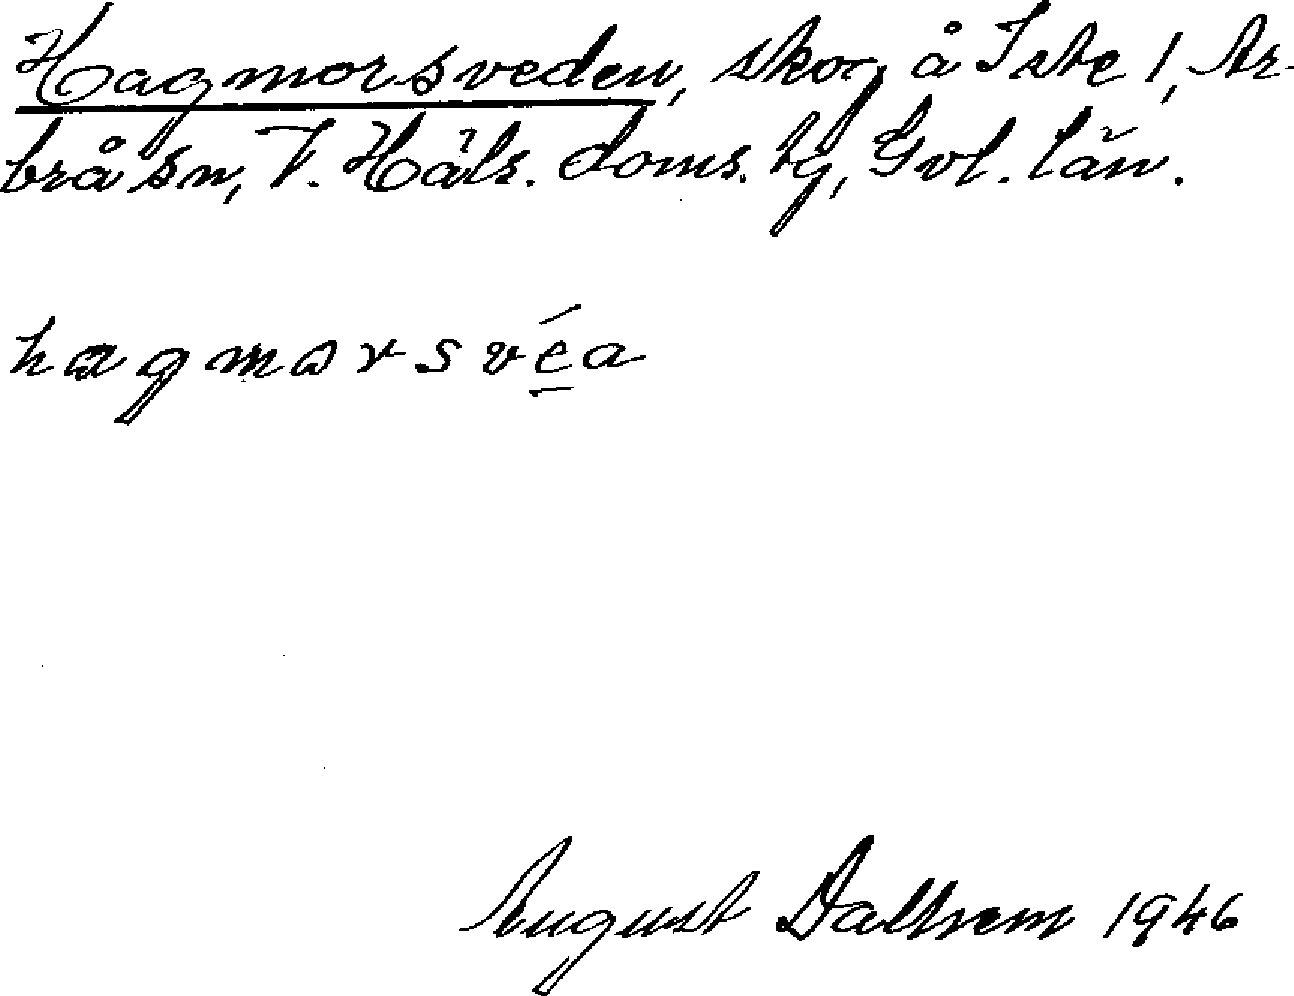 Hagmorsveden, skog å Iste 1, Ar-
brå sn, V. Häls. doms. tg, Gvl. län.
hagmorsvéa
August Dalhem 1946